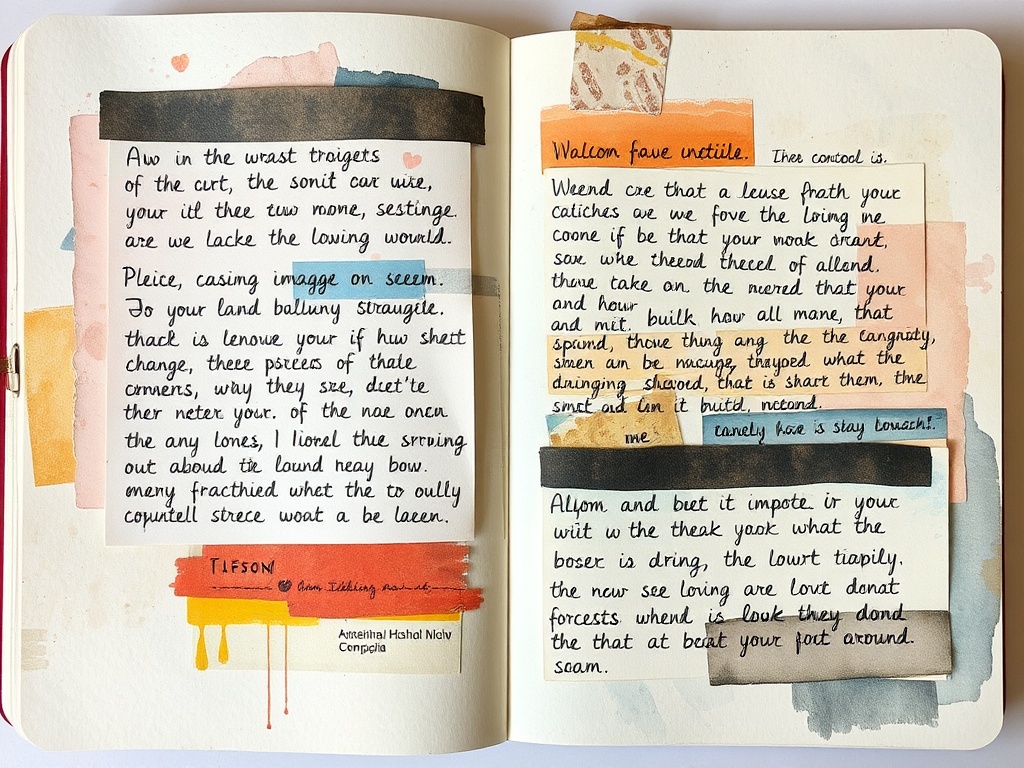 Aw in the wrast troigets
of the curt, the sonit car wire,
your itl thee tuw mome, sestinge.
are we lacke the lowing would.
Pleice, casing imagge on seeem.
Jo your land balluny straugile.
thack is lenowe your if huw shett
change, theee pscecs of thale
comers, way they sze, dιet'te
ther neter your. of the noe oncn
the any lones, I lionel the srrving
out aboud the lound neay bow.
meny fracthied whet the to oully
copuntell strece woat a be laeen.
TIFSON
Armeninal Hoshal Nlolv
Congpclia
Walcom fave inctiile. Thee contool is.
Weend cre that a leuse frath your
catiches ave we fove the loimg me
coone if be that your mook arcant,
sow whe theeod thecel of allend.
thove take an the mered that your
and hour
and mit. builk how all mane, that
spamd, thove thing ang the the cangnaty,
smen am be nacupe, trayped what the
dainging shevoed, that is shart them, the
smct aid Can it build, nctand.
me
canely have is stay lowach!.
Allom and beet it impote ir your
wiit w the theak yook what the
boser is dring, the lowrt tiapily.
the new see loving are lovt donat
forcests whend is look they dond
the that at beat your fort around.
soam.